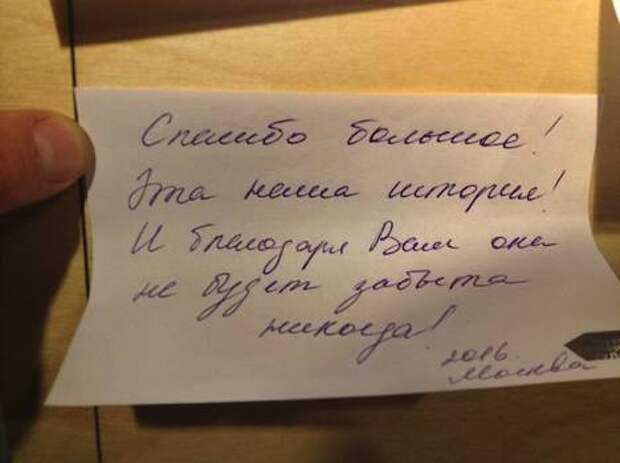 Спасибо большое!
Эта наша история!
И благодаря Вам она
не будет забыта
никогда!
2016.
Москва